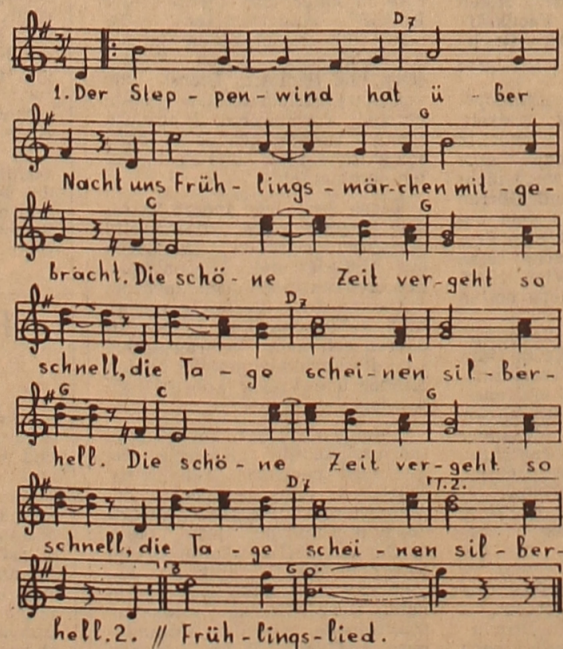 D7
1. Der Step - pen - wind hat ü - ber
G
Nacht uns Früh - lings - mär - chen mit - ge -
C G
bracht. Die schö - ne Zeit ver - geht so
D7
schnell, die Ta - ge schei - nen sil - ber -
G C G
hell. Die schö - ne Zeit ver - geht so
D7 1.2.
schnell, die Ta - ge schei - nen sil - ber -
G
hell. 2. // Früh - lings - lied.